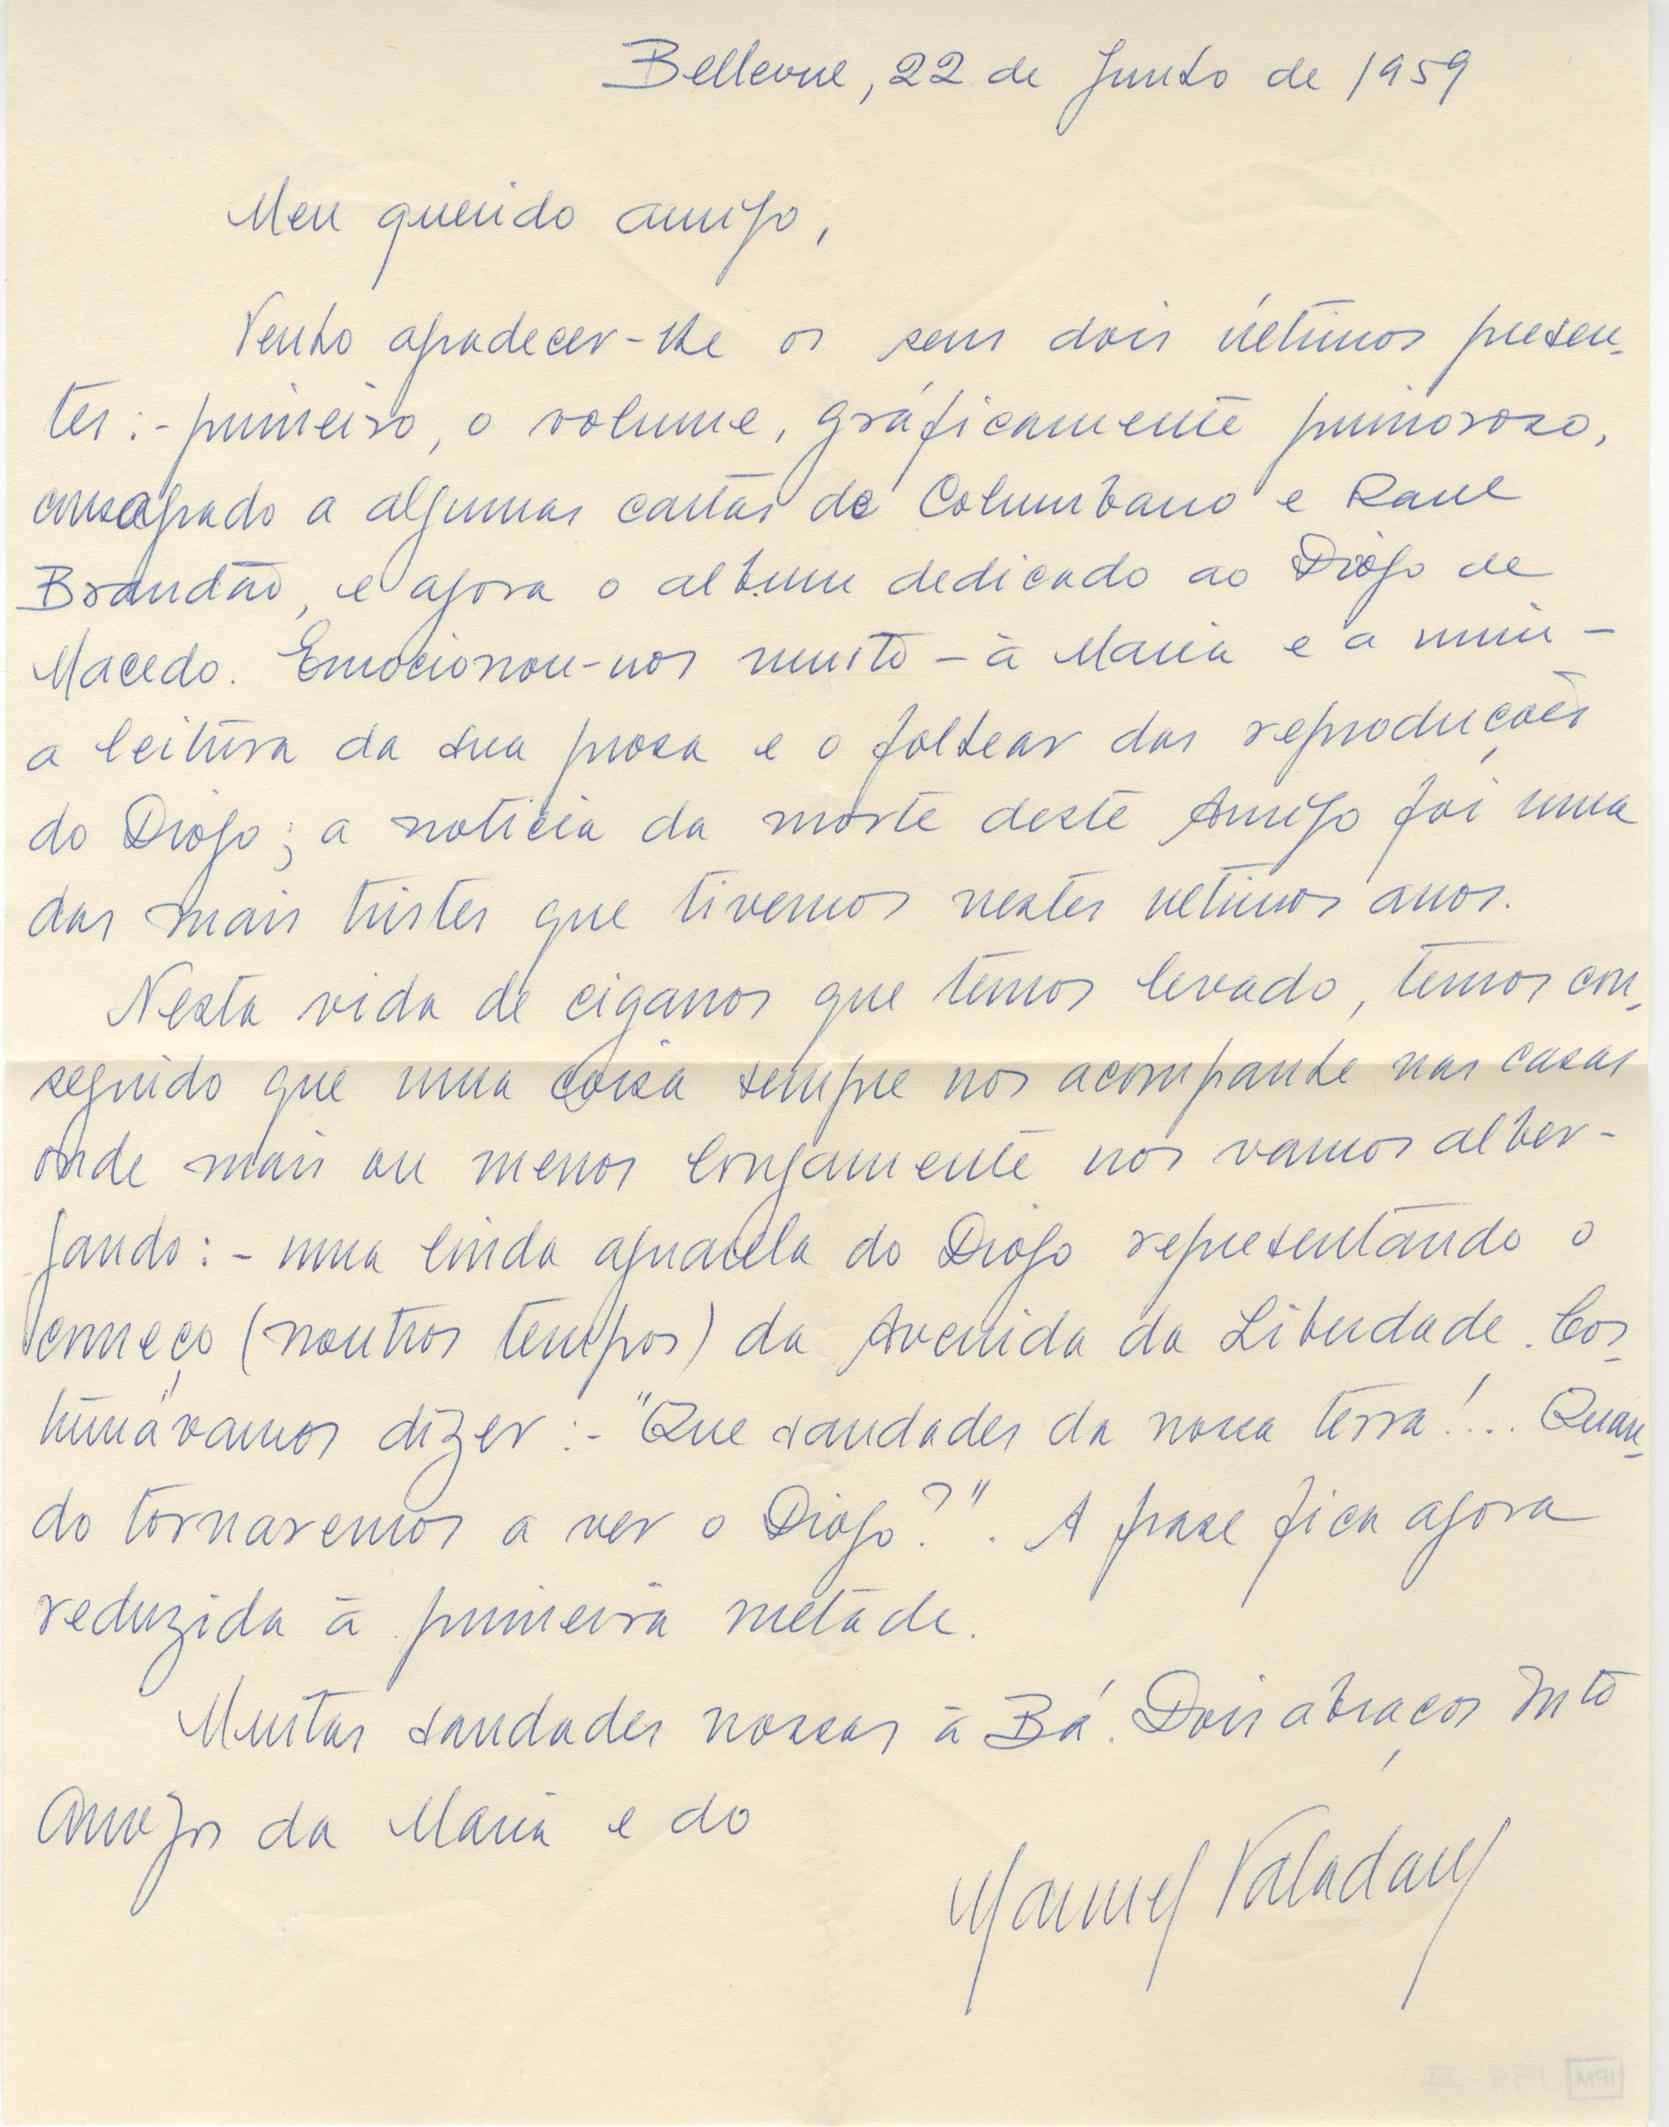 Bellevue, 22 de Junho de 1959
Meu querido amigo,
Venho agradecer-lhe os seus dois últimos presen-
tes:- primeiro, o volume, gráficamente primoroso,
consagrado a algumas cartas de Columbano e Raul
Brandão, e agora o album dedicado ao Diogo de
Macedo. Emocionou-nos muito - à Maria e a mim -
a leitura da sua prosa e o folhear das reproduções
do Diogo; a noticia da morte deste Amigo foi uma
das mais tristes que tivemos nestes ultimos anos.
Nesta vida de ciganos que temos levado, temos con-
seguido que uma coisa sempre nos acompanhe nas casas
onde mais ou menos longamente nos vamos alber-
gando:- uma linda aguarela do Diogo representando o
começo (noutros tempos) da Avenida da Liberdade. Cos-
tumávamos dizer:- "Que saudades da nossa terra!... Quan-
do tornaremos a ver o Diogo?". A frase fica agora
reduzida à primeira metade.
Muitas saudades nossas à Bá. Dois abraços mto
Amigos da Maria e do
Manuel Valadares